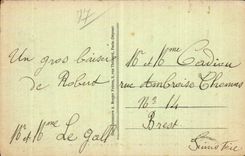 77
Un gros baiser
de Robert
Mr et Mme Le Gall
Mr et Mme Cadiou
rue Ambroise Thomas
No 14
Brest
Finistère